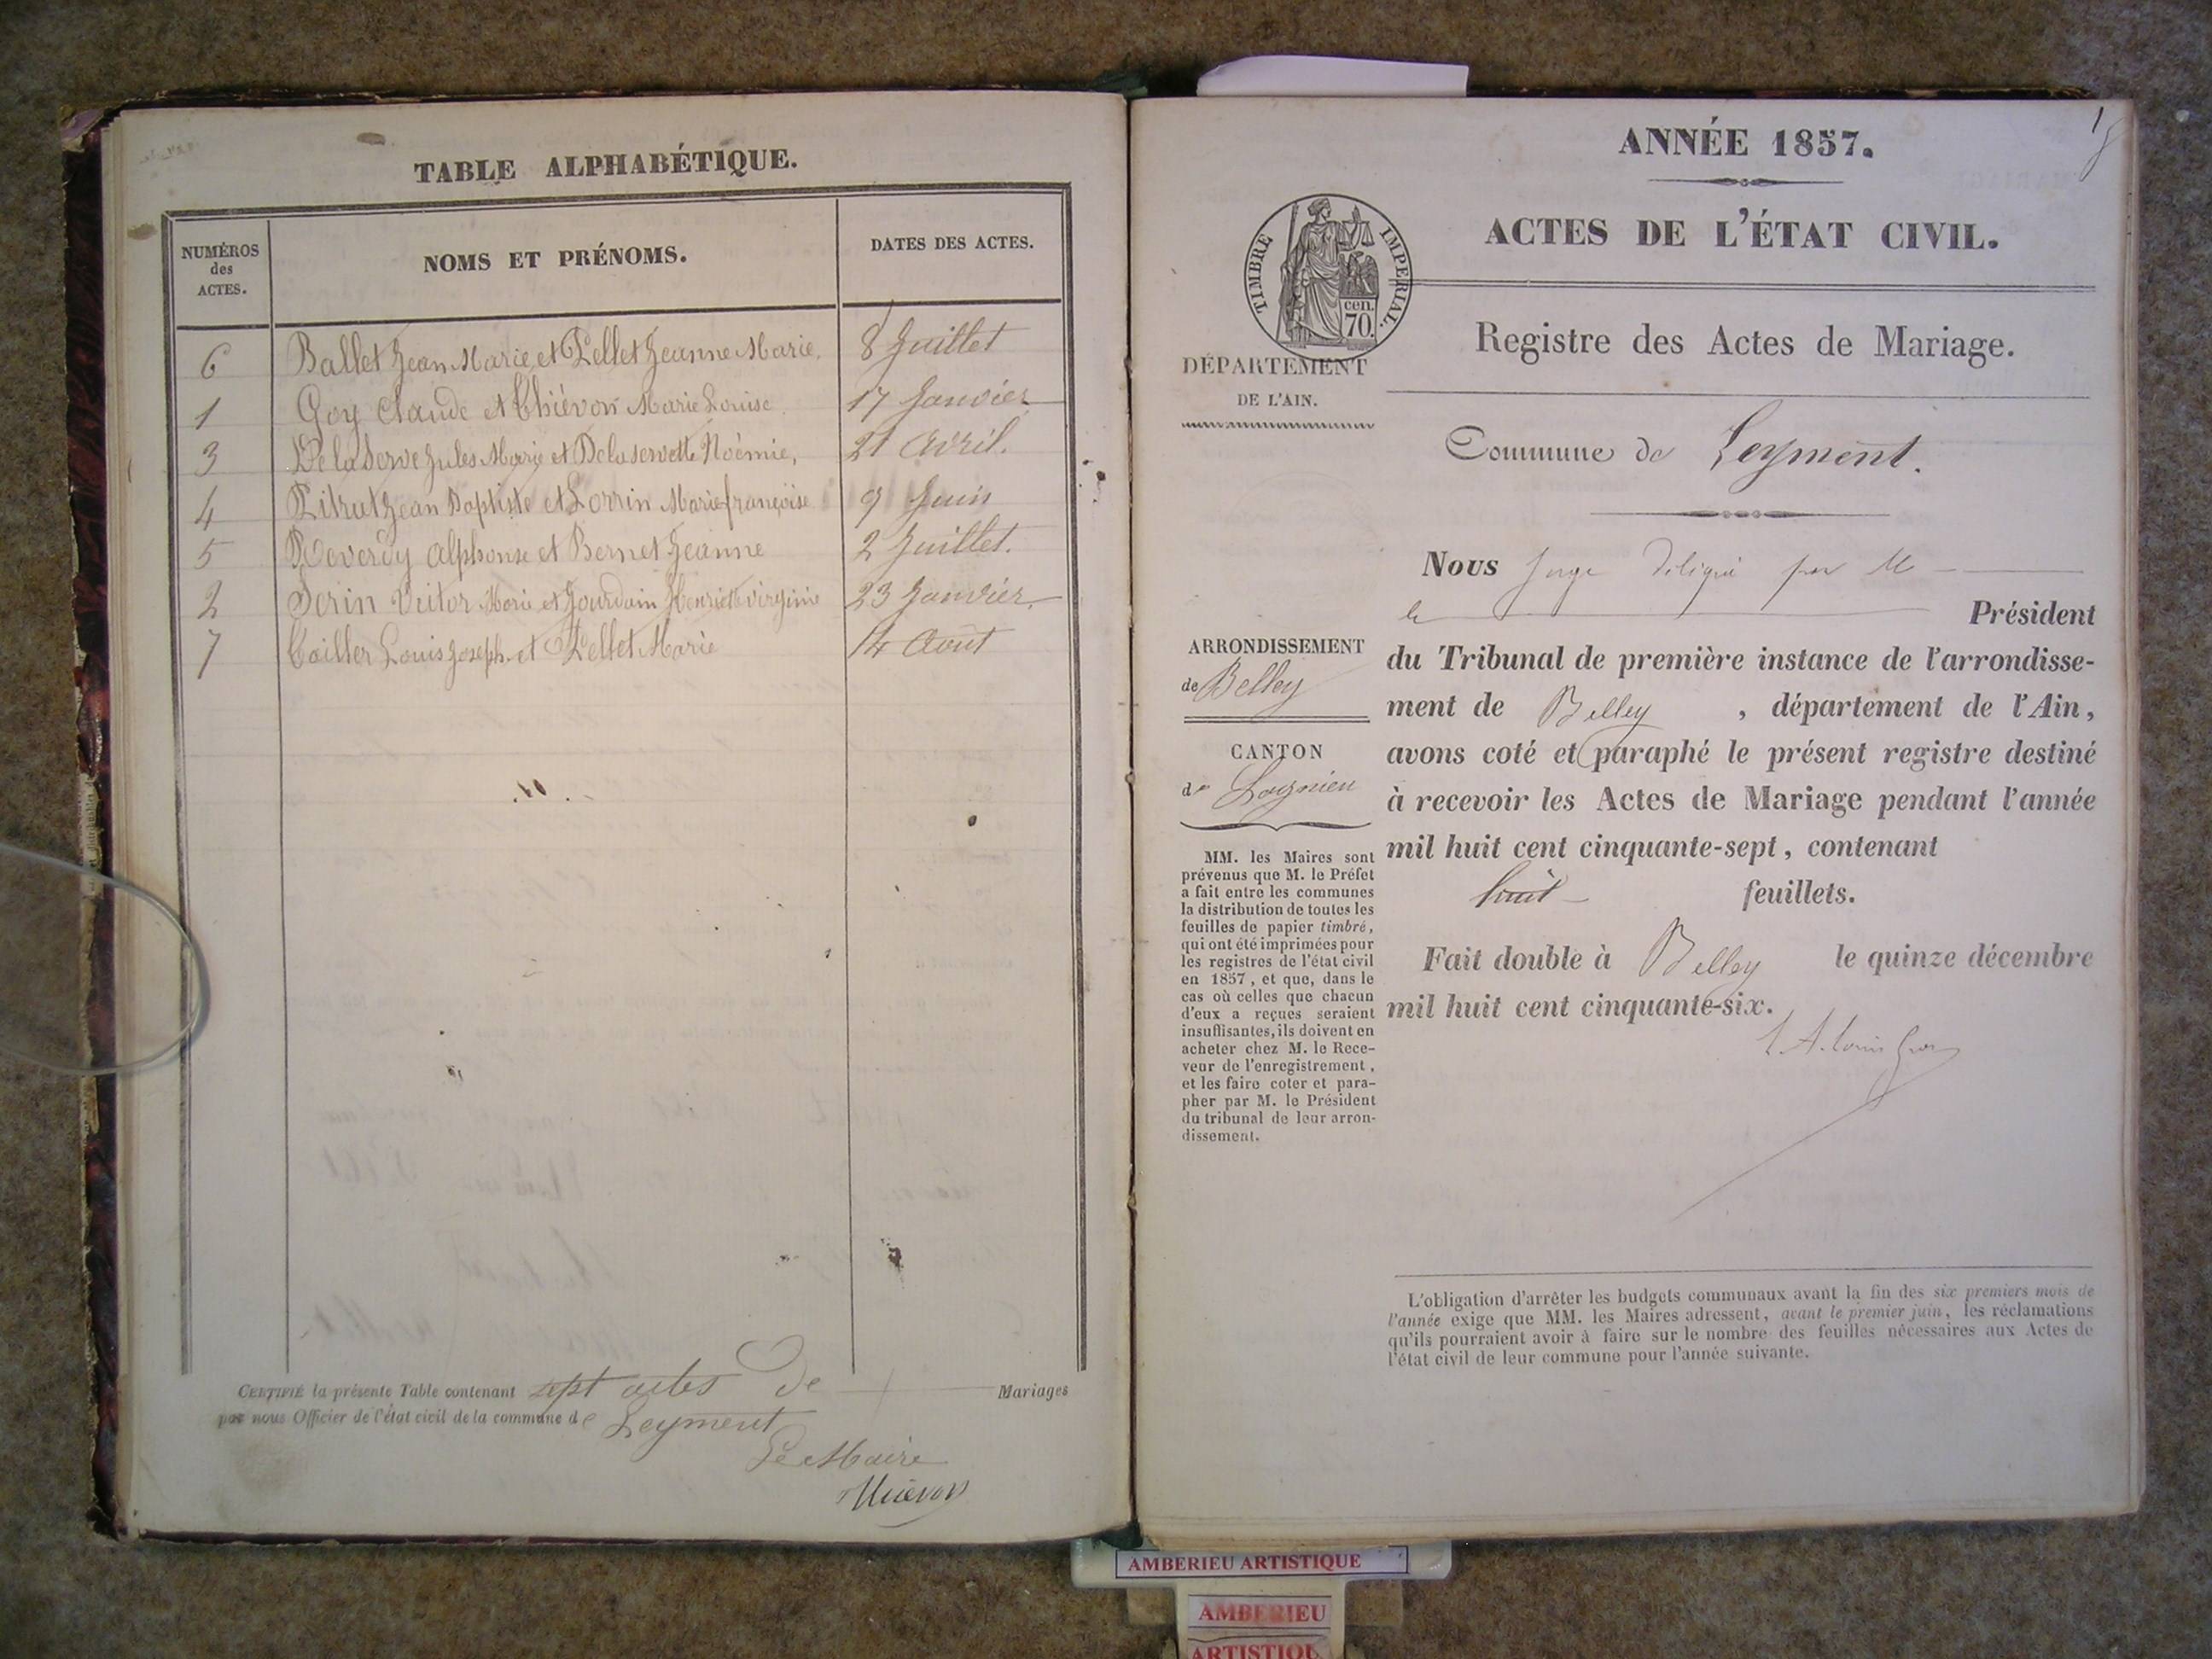 TABLE ALPHABÉTIQUE.
NUMÉROS des ACTES. NOMS ET PRÉNOMS. DATES DES ACTES.
6 Ballet Jean Marie et Pellet Jeanne Marie. 8 Juillet
1 Goy Claude et Thiévon Marie Louise 17 Janvier
3 De la Serve Jules Marie et Delaservette Noémie, 21 Avril.
4 Pitrut Jean Baptiste et Lorrin Marie françoise 9 Juin
5 Reverdy Alphonse et Bernet Jeanne 2 Juillet.
2 Serin Victor Marie et Jourdain Henriette virginie 23 Janvier.
7 Louis Joseph et Pellet Marie 14 Aout
CERTIFIÉ la présente Table contenant sept actes de Mariages
par nous Officier de l'état civil de la commune de Leyment
Le Maire
Thiévon
1
ANNÉE 1857.
ACTES DE L'ÉTAT CIVIL.
TIMBRE IMPERIAL.
cen. 70.
Registre des Actes de Mariage.
DÉPARTEMENT
DE L'AIN.
Commune de Leyment.
Nous Juge délégué par M
le Président
du Tribunal de première instance de l'arrondisse-
ment de Belley, département de l'Ain,
avons coté et paraphé le présent registre destiné
à recevoir les Actes de Mariage pendant l'année
mil huit cent cinquante-sept, contenant
huit feuillets.
Fait double à Belley le quinze décembre
mil huit cent cinquante-six.
ARRONDISSEMENT
de Belley
CANTON
de Lagnieu
MM. les Maires sont
prévenus que M. le Préfet
a fait entre les communes
la distribution de toutes les
feuilles de papier timbré,
qui ont été imprimées pour
les registres de l'état civil
en 1857, et que, dans le
cas où celles que chacun
d'eux a reçues seraient
insuffisantes, ils doivent en
acheter chez M. le Rece-
veur de l'enregistrement,
et les faire coter et para-
pher par M. le Président
du tribunal de leur arron-
dissement.
L'obligation d'arrêter les budgets communaux avant la fin des six premiers mois de
l'année exige que MM. les Maires adressent, avant le premier juin, les réclamations
qu'ils pourraient avoir à faire sur le nombre des feuilles nécessaires aux Actes de
l'état civil de leur commune pour l'année suivante.
AMBERIEU ARTISTIQUE
AMBERIEU
ARTISTIQU